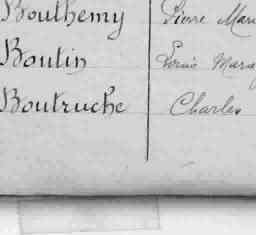 Bouthemy Pierre Mari
Boutin Marg
Boutruche Charles